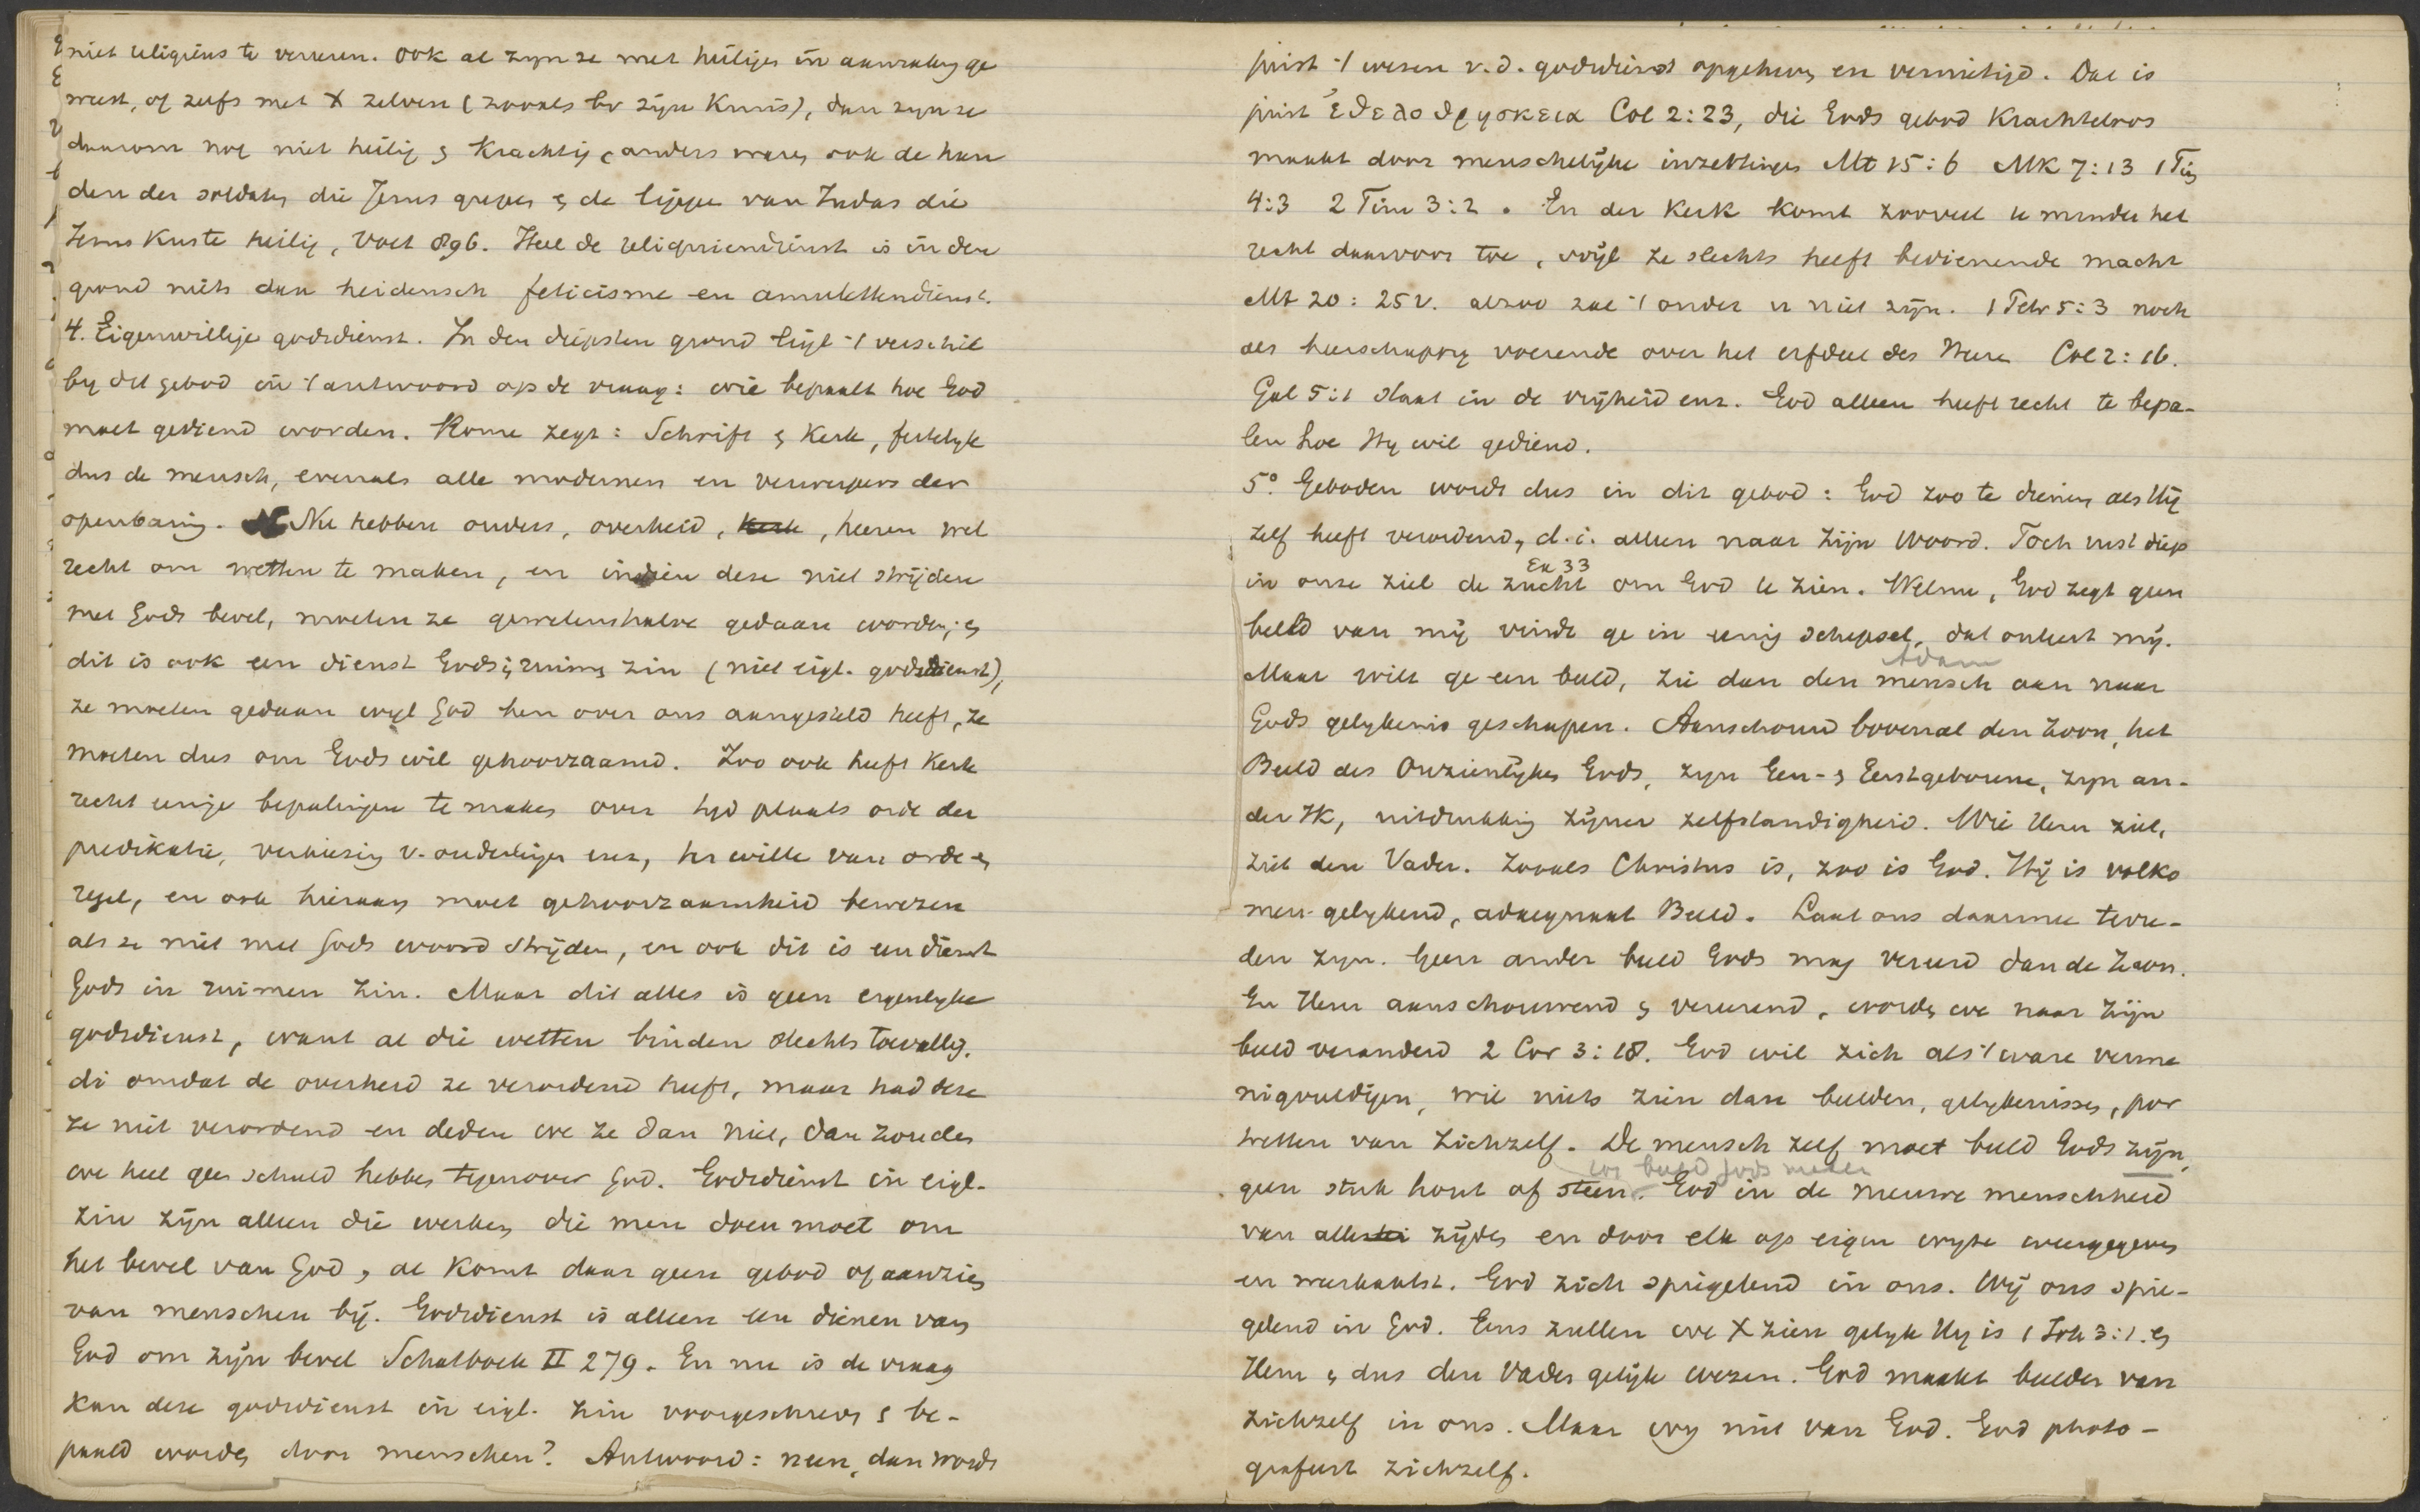 niet religieus te vereren. Ook al zyn ze met heiligen in aanraking ge
weest, of zelfs met X zelven (zooals bv zijn kruis), dan zyn ze
daarom nog niet heilig & krachtig, anders waren ook de han
den der soldaten die Jezus grepen & de lippen van Judas die
Jezus kuste heilig, Voet 896. Heel de reliquiendienst is in den
grond niets dan heidensch feticisme en amulettendienst.
4. Eigenwillige godsdienst. In den diepsten grond ligt 't verschil
by dit gebod in 't antwoord op de vraag: wie bepaalt hoe God
moet gediend worden. Rome zegt: Schrift & Kerk, feitelyk
dus de mensch, evenals alle modernen en verwerpers der
openbaring. Nu hebben ouders, overheid, kerk, heeren wel
recht om wetten te maken, en indien deze niet strijden
met Gods bevel, moeten ze gewetenshalve gedaan worden; &
dit is ook een dienst Gods i. ruimen zin (niet eigl. godsdienst),
ze moeten gedaan wyl God hen over ons aangesteld heeft, ze
moeten dus om Gods wil gehoorzaamd. Zoo ook heeft Kerk
recht eenige bepalingen te maken over tyd plaats orde der
predikatie, verkiezing v. ouderlingen enz, ter wille van orde &
regel, en ook hieraan moet gehoorzaamheid bewezen
als ze niet met Gods woord strijden, en ook dit is een dienst
Gods in ruimen zin. Maar dit alles is geen eigenlyke
godsdienst, want al die wetten binden slechts toevallig,
di omdat de overheid ze verordend heeft, maar had deze
ze niet verordend en deden we ze dan niet, dan zouden
we heel geen schuld hebben tegenover God. Godsdienst in eigl.
zin zijn alleen die werken die men doen moet om
het bevel van God, al komt daar geen gebod of aanzien
van menschen bij. Godsdienst is alleen een dienen van
God om zijn bevel Schatboek II 279. En nu is de vraag
kan deze godsdienst in eigl. zin voorgeschreven & be-
paald worden door menschen? Antwoord: neen, dan wordt
juist 't wezen v.d. godsdienst opgeheven en vernietigd. Dat is
juist ἐθελοθρησκεια Col 2:23, die Gods gebod krachteloos
maakt door menschelijke inzettingen Mt 15:6 Mk 7:13 1 Tim
4:3 2 Tim 3:2. En der Kerk komt zooveel te minder het
recht daarvoor toe, wijl ze slechts heeft bedienende macht
Mt 20:25v. alzoo zal 't onder u niet zijn. 1 Petr 5:3 noch
als heerschappy voerende over het erfdeel des Heeren Col 2:16.
Gal 5:1 staat in de vrijheid enz. God alleen heeft recht te bepa-
len hoe Hy wil gediend.
5°. Geboden wordt dus in dit gebod: God zoo te dienen als Hij
zelf heeft verordend, d.i. alleen naar zijn Woord. Toch rust diep
Ex 33
in onze ziel de zucht om God te zien. Welnu, God zegt geen
beeld van mij vindt ge in eenig schepsel, dat onteert mij.
Adam
Maar wilt ge een beeld, zie dan den mensch aan naar
Gods gelykenis geschapen. Aanschouw bovenal den Zoon, het
Beeld des Onzienlijken Gods, zyn Een- & Eerstgeborene, zyn an-
der Ik, uitdrukking zijner zelfstandigheid. Wie Hem ziet,
ziet den Vader. Zooals Christus is, zoo is God. Hij is volko
men gelykend, adaequaat Beeld. Laat ons daarmee tevre-
den zyn. Geen ander beeld Gods mag vereerd dan de Zoon.
En Hem aanschouwend & vereerend, worden we naar zijn
beeld veranderd 2 Cor 3:18. God wil zich als 't ware verme
nigvuldigen, wil niets zien dan beelden, gelykenissen, por
tretten van zichzelf. De mensch zelf moet beeld Gods zijn,
beeld Gods
geen stuk hout of steen. God in de nieuwe menschheid
van allerlei zijden en door elk op eigen wyze weergegeven
en weerkaatst. God zich spiegelend in ons. Wij ons spie-
gelend in God. Eens zullen we X zien gelyk Hy is 1 Joh 3:1. &
Hem & dus den Vader gelijk wezen. God maakt beelden van
zichzelf in ons. Maar wy niet van God. God photo-
grafeert zichzelf.